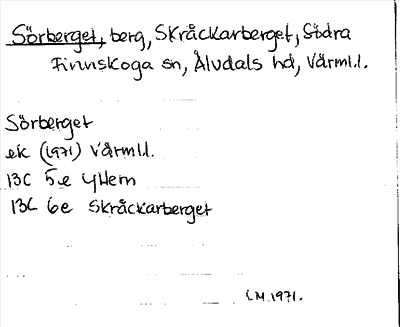 Sörberget, berg, Skråckarberget, Södra
Finnskoga sn, Älvdals hd, Värml.l.
Sörberget
ek (1971) Värml.l.
13C 5e Yttern
13C 6e Skråckarberget
LM.1971.